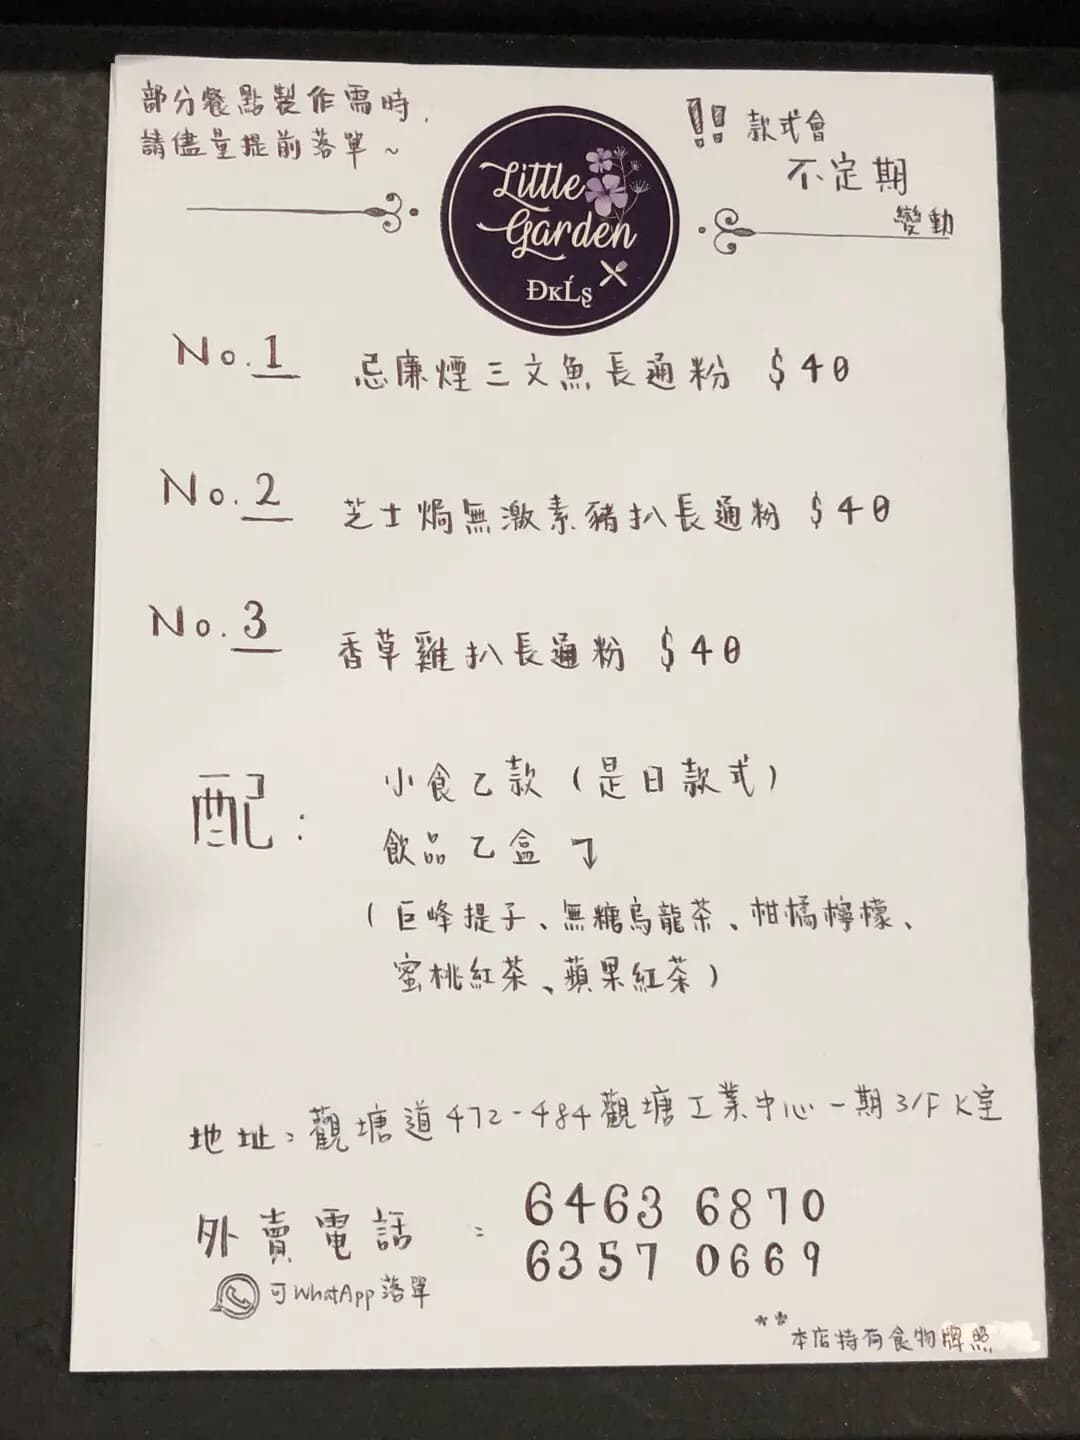 部分餐點製作需時,
請儘量提前落單~
!! 款式會
不定期
變動
Little
Garden
ĐĸĹş
No.1 忌廉煙三文魚長通粉 $40
No.2 芝士焗無激素豬扒長通粉 $40
No.3 香草雞扒長通粉 $40
配: 小食乙款(是日款式)
飲品乙盒
(巨峰提子、無糖烏龍茶、柑橘檸檬、
蜜桃紅茶、蘋果紅茶)
地址:觀塘道472-484觀塘工業中心一期3/F K室
外賣電話: 6463 6870
6357 0669
可WhatApp落單
**本店持有食物牌照